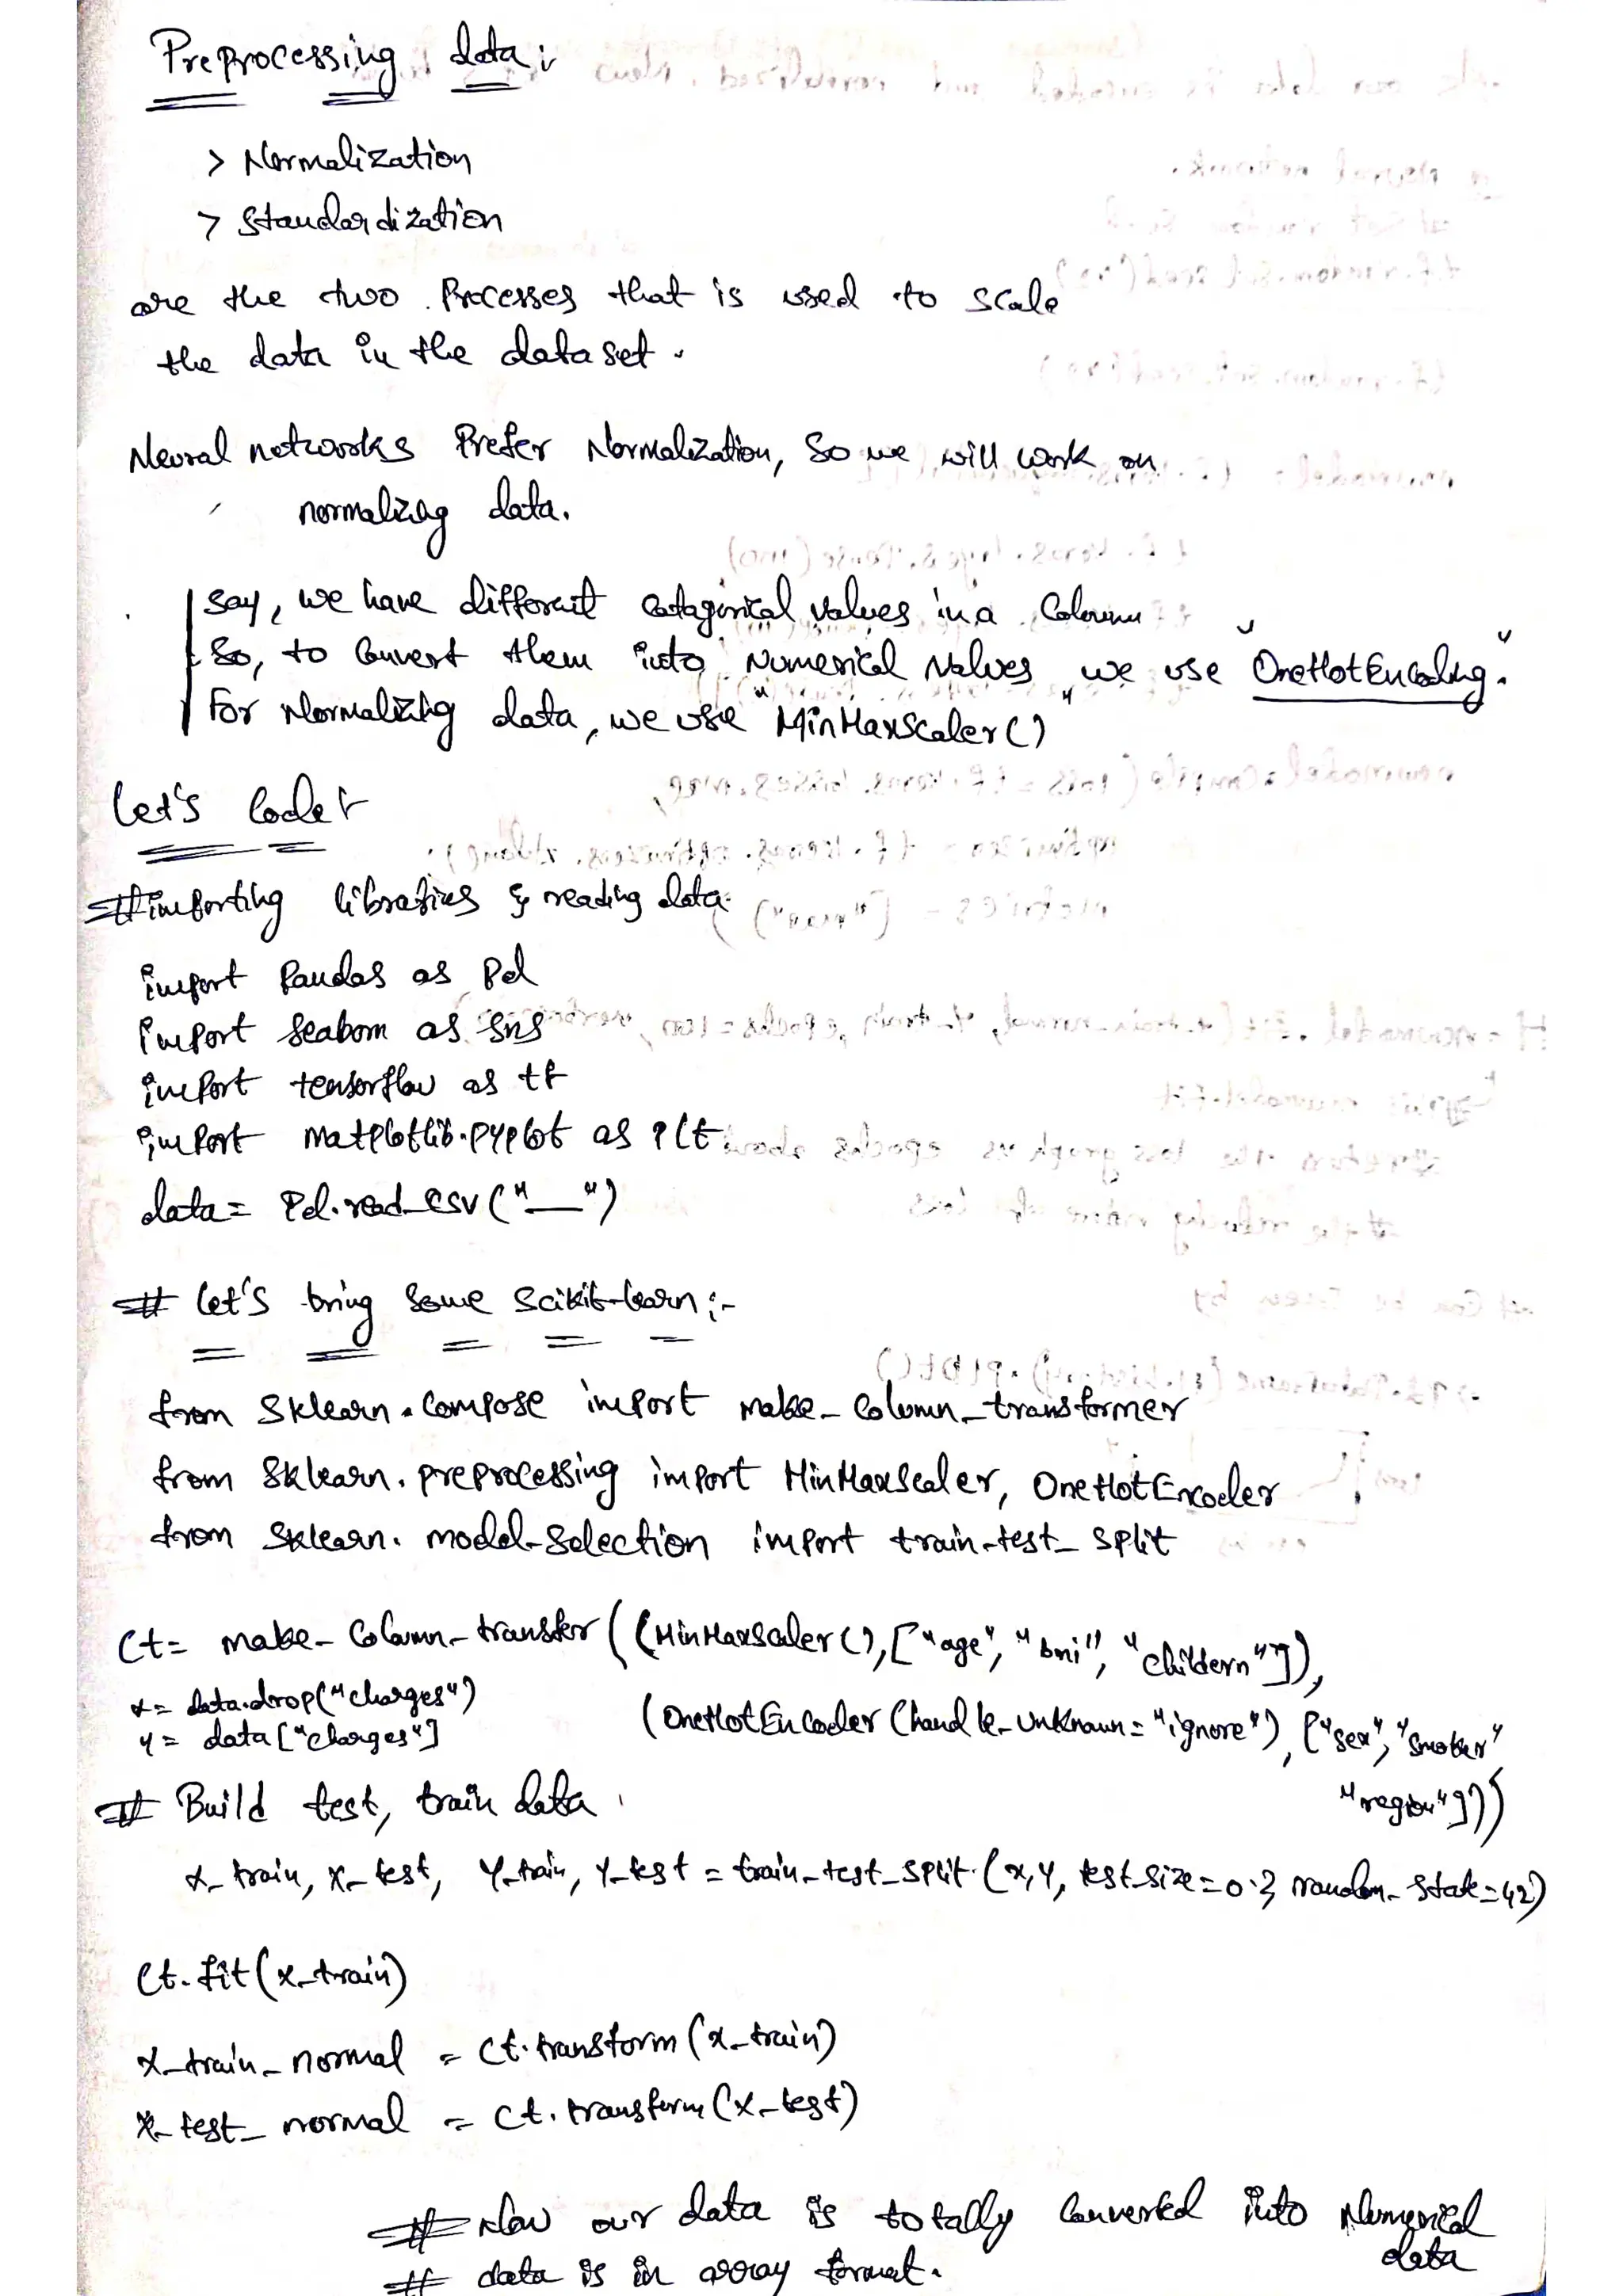 Preprocessing data:
> Normalization
> Standardization
are the two Processes that is used to scale
the data in the dataset.
Neural networks Prefer Normalization, So we will work on
normalizing data.
say, we have different catagorical values in a Column
So, to Convert them into Numerical Values we use "OneHotEncoding".
For Normalizing data, we use "MinMaxScaler()"
Let's Code!
#importing libraries & reading data
import Pandas as Pd
import Seaborn as sns
import tensorflow as tf
import matplotlib.pyplot as plt
data = Pd.read_csv("__")
# Let's bring Some Scikit-learn:-
from Sklearn.compose import make_Column_transformer
from Sklearn.preprocessing import MinMaxScaler, OneHotEncoder
from Sklearn.model-selection import train-test_split
Ct= make-Column-transfer((MinMaxScaler(), ["age", "bmi", "childern"]),
x= data.drop("charges")
(OneHotEncoder(handle_unknown="ignore"), ["sex", "smoker"
y = data["charges"]
"region"]))
# Build test, train data
x_train, x_test, y_train, y_test = train_test_split(x,y, test_size=0.2, random_state=42)
Ct.fit(x_train)
x_train_normal = Ct.transform(x_train)
x_test_normal = Ct.transform(x_test)
# Now our data is totally Converted into Numerical
data
# data is in array format.